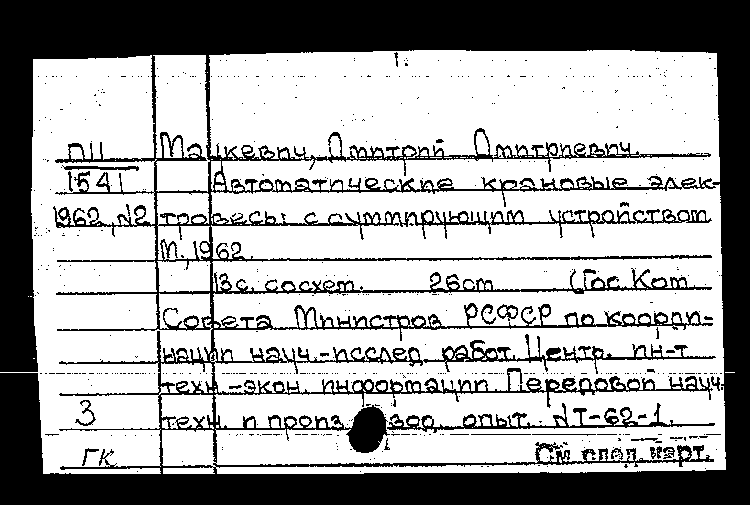 1.
ПИ Мацкевич, Дмитрий Дмитриевич.
1541 Автоматические крановые элек-
1962, N2 тровесы с суммирующим устройством
М., 1962.
13с. со схем. 26см (Гос. Ком.
Совета Министров РСФСР по коорди-
нации науч.-исслед. работ. Центр. ин-т
техн.-экон. информации. Передовой науч.
3 техн. и произ вод. опыт. N Т-62-1.
ГК См. след. карт.